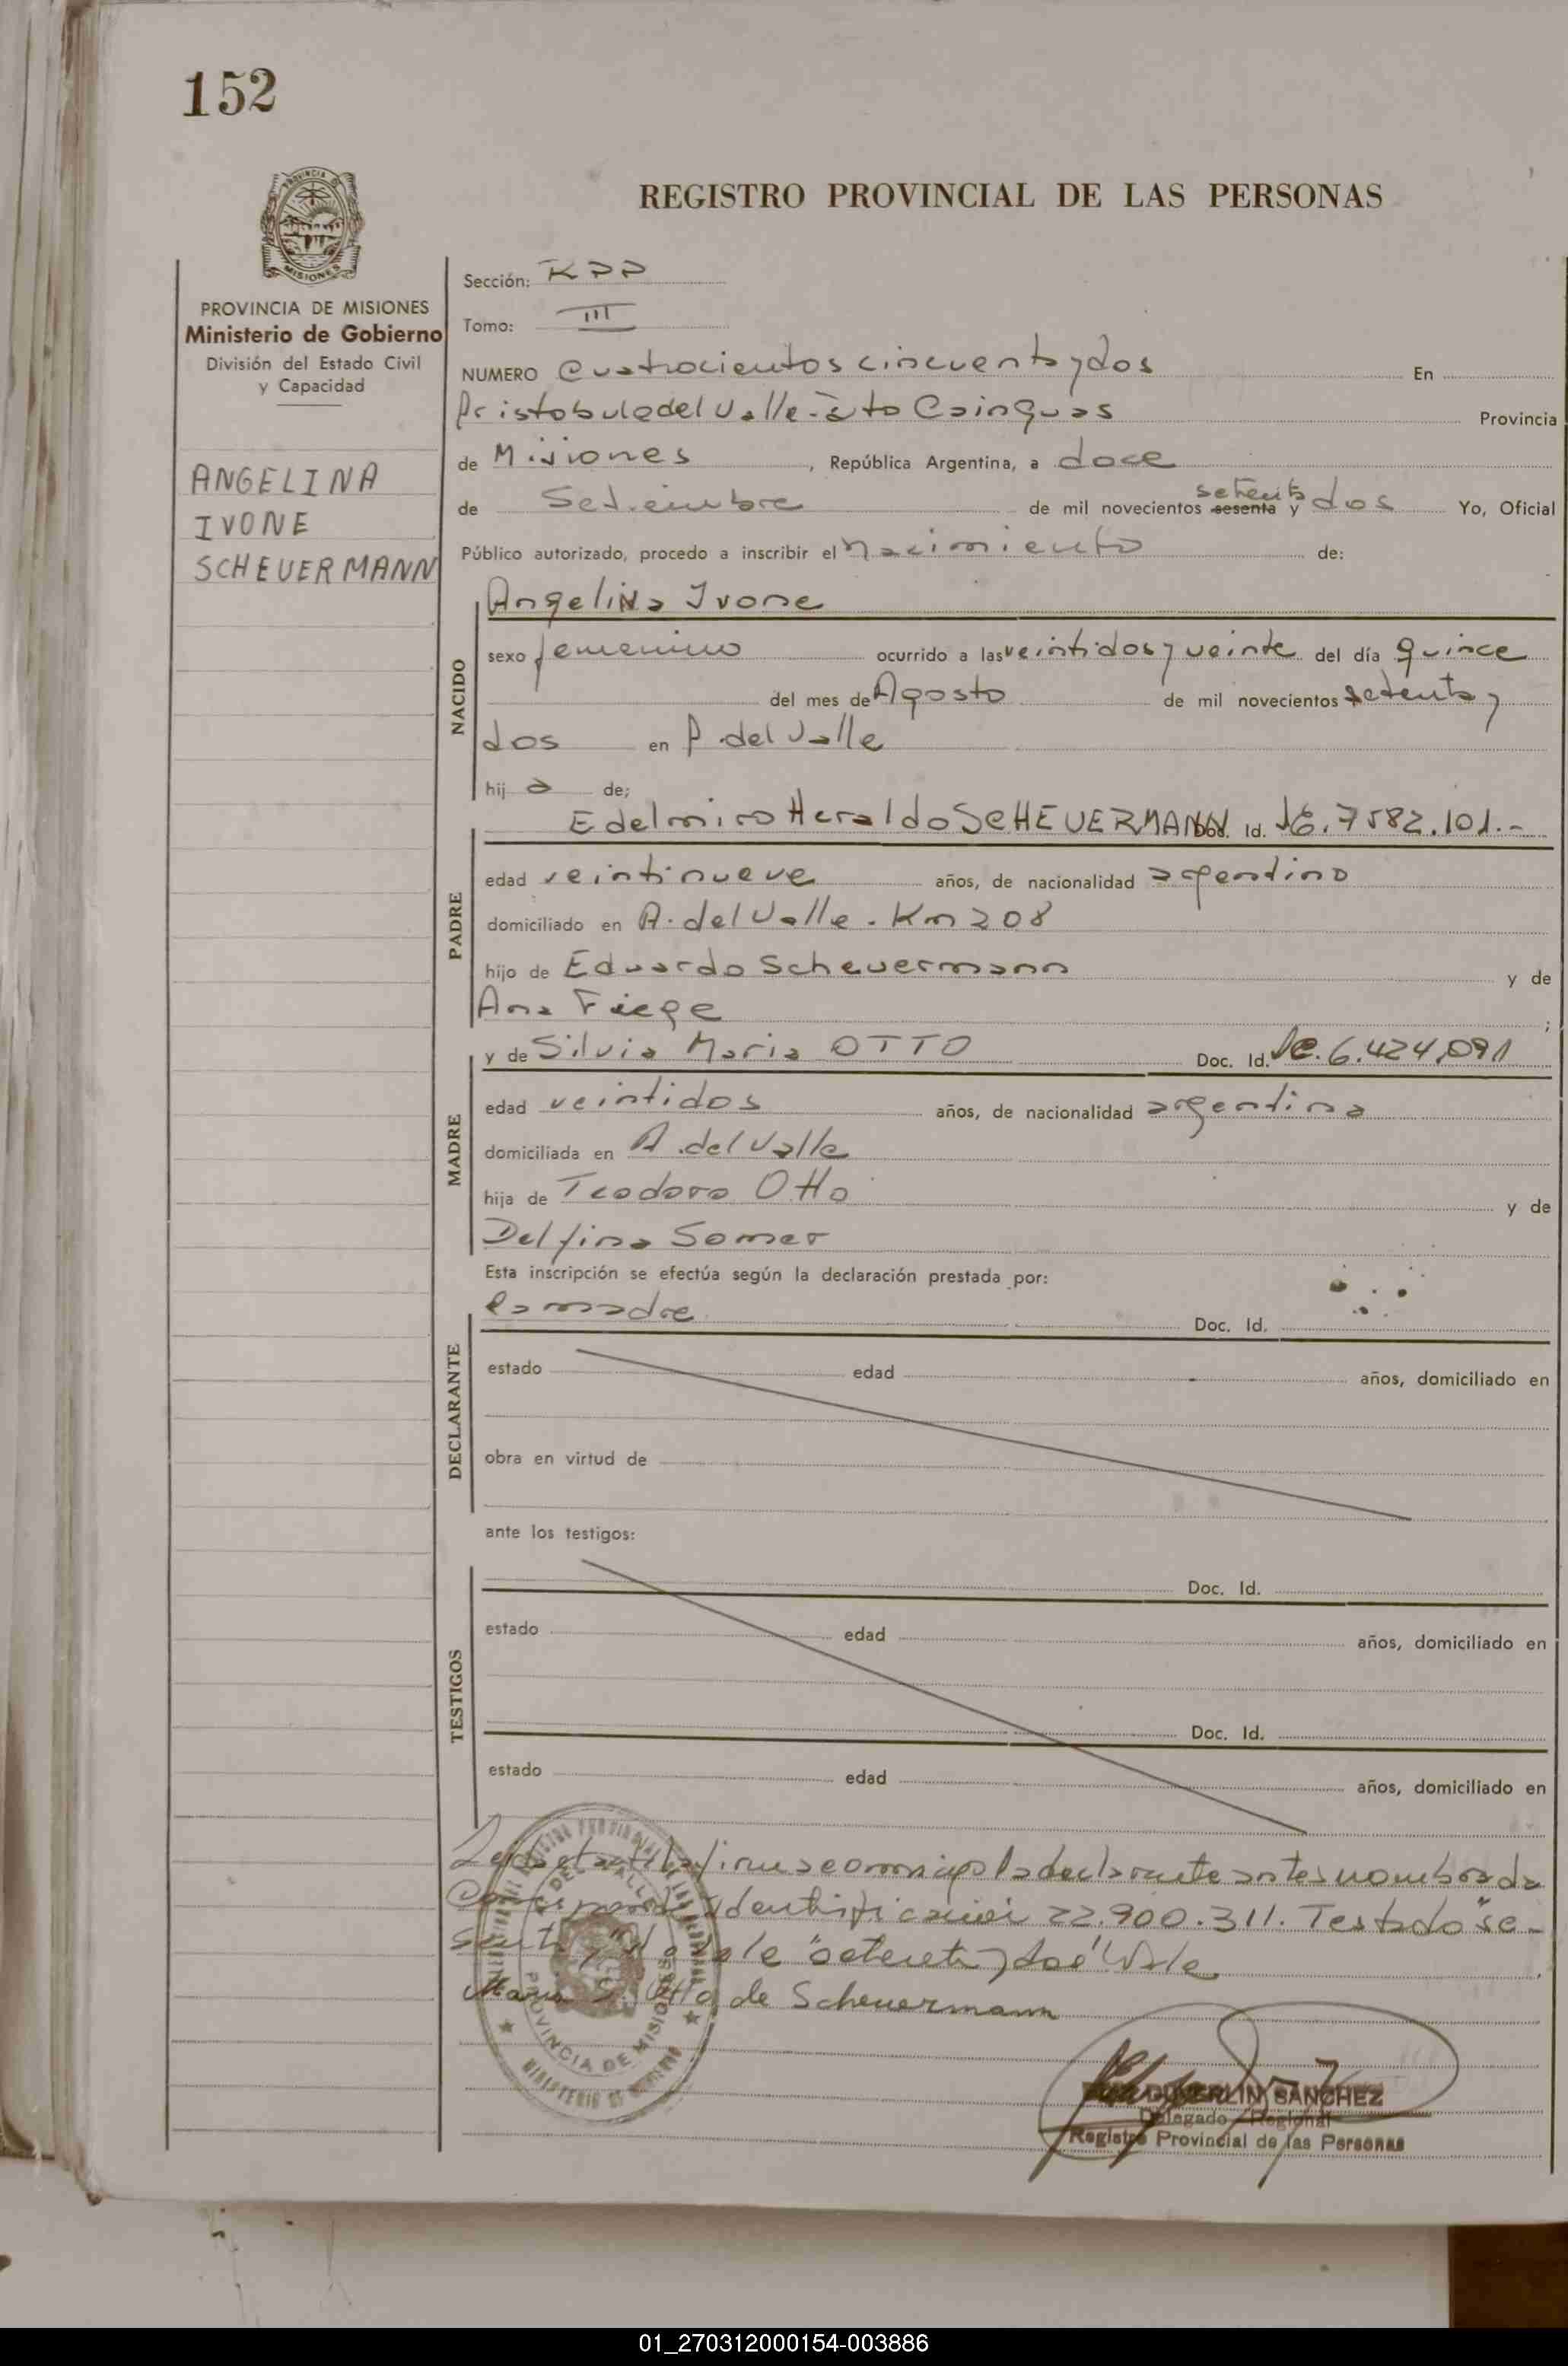 152
REGISTRO PROVINCIAL DE LAS PERSONAS
PROVINCIA DE
MISIONES
PROVINCIA DE MISIONES
Ministerio de Gobierno
División del Estado Civil
y Capacidad
ANGELINA
IVONE
SCHEUERMANN
Sección:
Tomo: III
NUMERO Cuatrocientos cincuenta y dos En
Aristobulo del Valle - Dto Cainguas Provincia
de Misiones , República Argentina, a doce
de Setiembre de mil novecientos sesenta setenta y dos Yo, Oficial
Público autorizado, procedo a inscribir el nacimiento de:
NACIDO
Angelina Ivone
sexo femenino ocurrido a las veintidos y veinte del día quince
del mes de Agosto de mil novecientos setenta y
dos en A. del Valle
hij a de;
PADRE
Edelmiro Heraldo SCHEUERMANN Doc. Id. 7582.101.-
edad veintinueve años, de nacionalidad argentino
domiciliado en A. del Valle - Km 208
hijo de Eduardo Scheuermann y de
Ana Fiege ;
MADRE
y de Silvia Maria OTTO Doc. Id. 6.424.091
edad veintidos años, de nacionalidad argentina
domiciliada en A. del Valle
hija de Teodoro Otto y de
Delfina Somer
Esta inscripción se efectúa según la declaración prestada por:
DECLARANTE
la madre Doc. Id.
estado edad años, domiciliado en
obra en virtud de
ante los testigos:
TESTIGOS
Doc. Id.
estado edad años, domiciliado en
Doc. Id.
estado edad años, domiciliado en
Leida el acta la firma conmigo la declarante antes nombrada
Corresponde identificación 22.900.311. Testado "se-
senta y" vale "setenta y dos" Vale
Maria S. Otto de Scheuermann
DEL VALLE
PROVINCIA DE MISIONES
MINISTERIO DE GOBIERNO
DUVERLIN SANCHEZ
Delegado Regional
Registro Provincial de las Personas
01_270312000154-003886